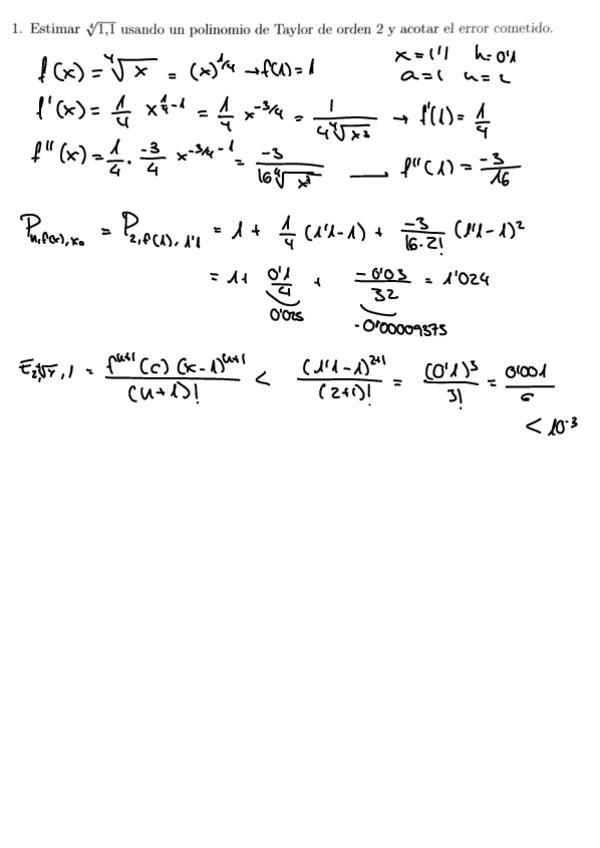 1. Estimar ∜1,1 usando un polinomio de Taylor de orden 2 y acotar el error cometido.
f(x) = ∜x = (x)^1/4 → f(1) = 1    x = 1'1  h = 0'1
a = 1  n = 2
f'(x) = 1/4 x^(1/4 - 1) = 1/4 x^(-3/4) = 1/(4 ∜x³) → f'(1) = 1/4
f''(x) = 1/4 · -3/4 x^(-3/4 - 1) = -3/(16 ∜x⁷) — f''(1) = -3/16
P_n,f(x),x₀ = P_2,f(1),1'1 = 1 + 1/4 (1'1-1) + -3/(16·2!) (1'1-1)²
= 1 + 0'1/4 + -0'03/32 = 1'024
0'025
-0'00009375
E_2,∜x,1 = f^(n+1) (c) (x-1)^(n+1)/(n+1)! < (1'1-1)^(2+1)/(2+1)! = (0'1)³/3! = 0'001/6
< 10^-3